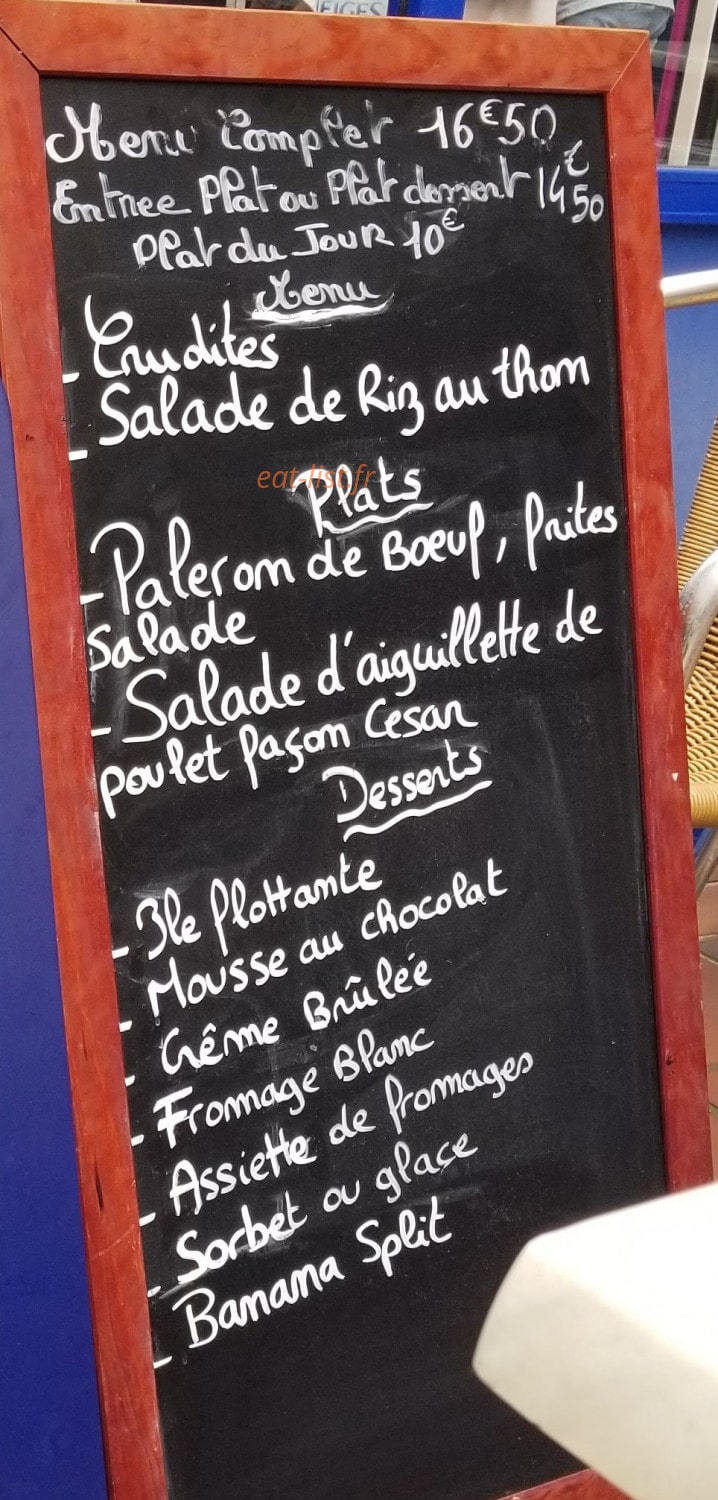 NEIGES
Menu Complet 16€50
Entree Plat ou Plat dessert 14€50
Plat du Jour 10€
Menu
- Crudites
- Salade de Riz au thon
eat-list.fr
Plats
- Paleron de Boeuf, frites
Salade
- Salade d'aiguillette de
poulet façon Cesar
Desserts
- Ile flottante
- Mousse au chocolat
- Crême Brûlée
- Fromage Blanc
- Assiette de fromages
- Sorbet ou glace
- Banana Split